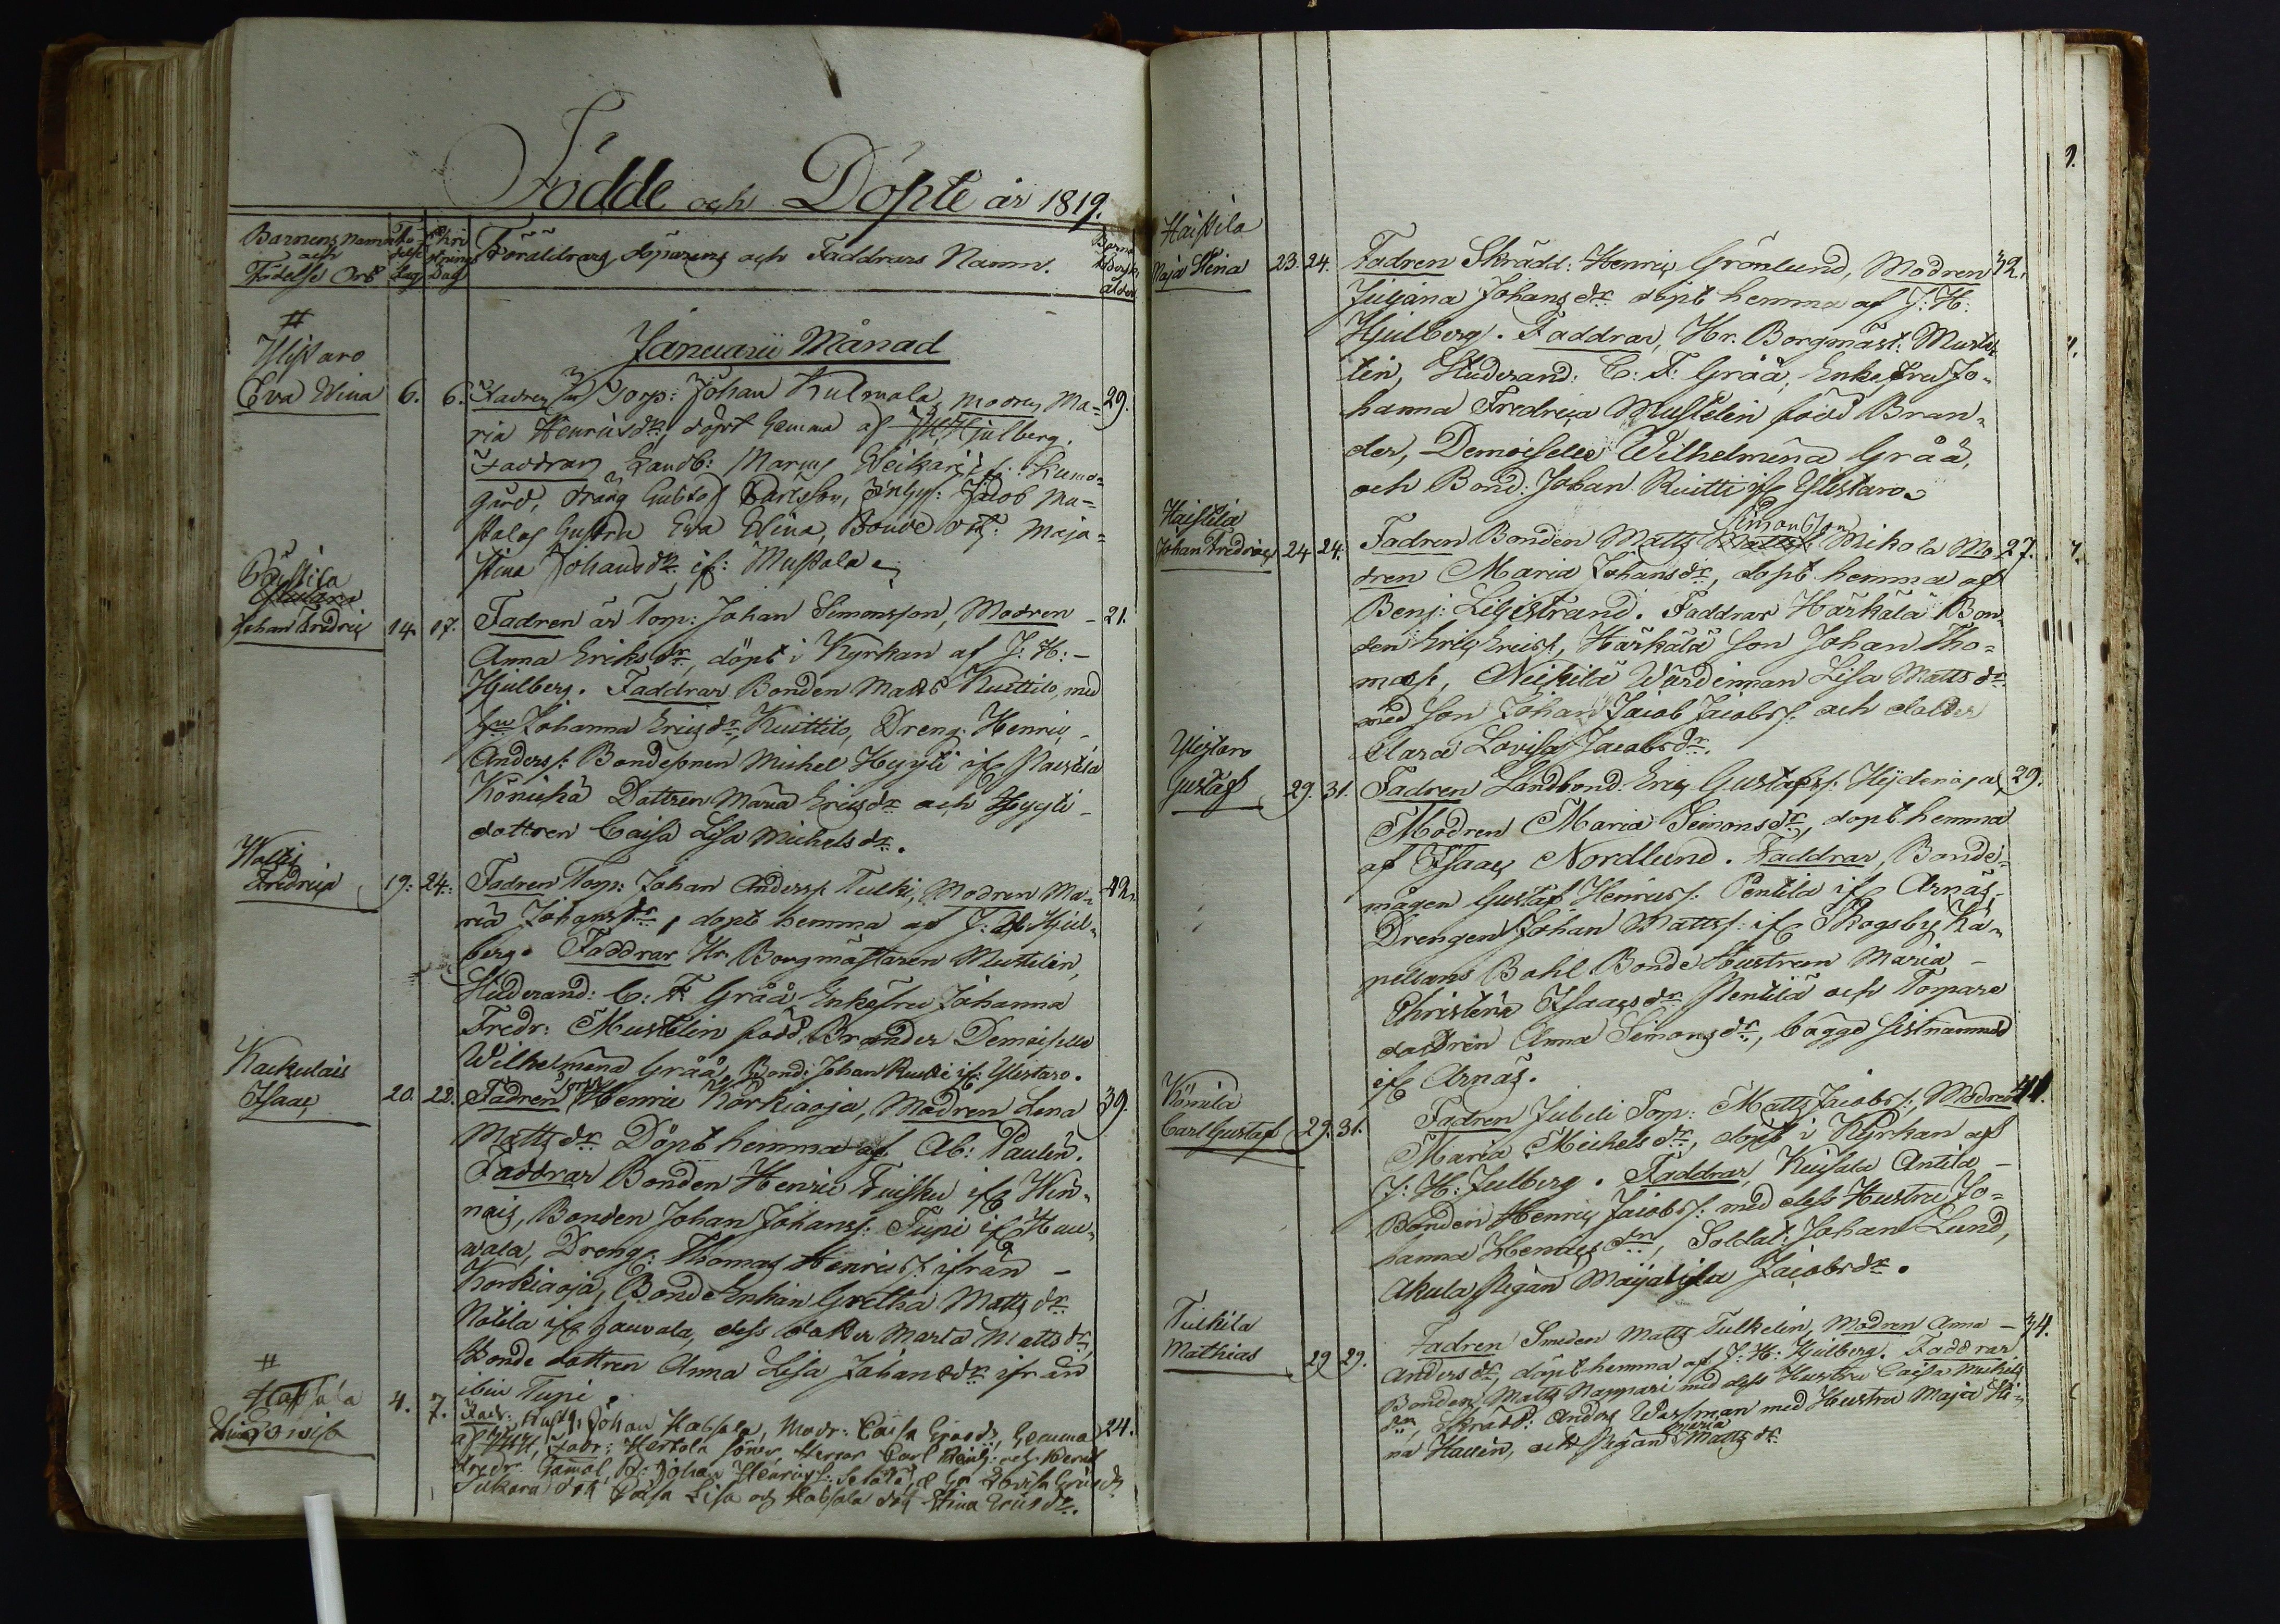 Födde och Döpte år 1819.
Barnens namn och Födelse Ort
Födelse dag
Christnings Dag
Föräldrars, döparens och Faddrars Namn.
Barna föderskans ålder
Januarii Månad
#
Ylistaro
Eva Stina 6. 6. Fadren är Torp: Johan Kulmala, modren Ma= 29.
ria Henricsdr, döpt hemma af J.H. Hjulberg.
Faddrar Landb: Marcus Weikari if: Kumo
gård, dräng Gustaf Carlsson, Jacob Mu=
stalas hustru Eva Stina, Bonde dot: Maja
Stina Johansdr if: Mustala
Johan Fredric 14. 17. Fadren är Torp: Johan Simonsson, Modren 21.
Anna Eriksdr, döpt i Kyrkan af J: H:
Hjulberg. Faddrar Bonden Matts Kuittilo, med
hu Johanna Ericsdr, Kuittilo, Dreng: Henric
Anderss: Bondesonen Michel Hyyti if
Dottren Maria Ericsdr och Hyyti
dottren Caisa Lisa Michelsdr.
Fredrica 19: 24: Fadren Torp: Johan Anderss: Tulki, Modren Ma= 42.
ria Johansdr, döpt hemma af J: H: Hjul=
berg. Faddrar Hr. Borgmästaren Mustelin,
Studerand: C: F. Gråå Enkefru Johanna
Fredr: Mustelin född Brander Demoiselle
Wilhelmina Gråå, Bond: Johan Ruitti if: Ylistaro.
Kackulais
Isaac 20. 22. Fadren Torp Henric Korkiaoja, Modren Lena 39.
Mattsdr Döpt hemma af Ab: Paulin.
Faddrar Bonden Henric Tuisku if Win=
nais, Bonden Johan Johanss: Tupi if Hau=
wala, Dreng: Thomas Henricss: ifrån
Korkiaoja, Bonde Enkan Gretha Mattsdr
Notila if Hauvala, dess dotter Marta Mattsdr,
Bonde dottren Anna Lisa Johansdr ifrån
ibm Tupi.
#
4. 7. Fadr: Johan Kabsala, Modr: Caisa hemma 24.
af JHH, Fadr: Herrar Carl
Johan Henricss:
Caisa Lisa och Kabsala dot Stina Ericsdr.
Haistila
Maja Stina 23. 24. Fadren Skrädd: Henric Grönlund, Modren 32.
Juliana Johansdr döpt hemma af J: H:
Hjulberg. Faddrar, Hr. Borgmäst: Muste
lin, Studerand: C: F: Gråå, Enkefru Jo=
hanna Fredrica Mustelin född Bran=
der, Demoiselle Wilhelmina Gråå,
och Bond: Johan Ruitti if Ylistaro
Haistila
Johan Fredric 24 24. Fadren Bonden Matts Simonsson Mikola Mo= 27.
dren Maria Johansdr, döpt hemma af
Benj: Liljestrand. Faddrar Härkälä Bon=
den Eric Ericss, Härkälä Son Johan Tho=
mass, Neikilä Wärdinnan Lisa Mattsdr
med Son Johan Jacob Jacobss: och dotter
Clara Lovisa Jacobsdr.
Ylistaro
Gustaf 29. 31. Fadren Landbond. Eric Gustafss: Heidenoja, 29.
Modren Maria Simonsdr, döpt hemma
af Isaac Nordlund. Faddrar, Bonde
mågen Gustaf Henricss: Pentila if Arnäs,
Drengen Johan Mattss: if Skogsby Ka=
pellans Bohl Bonde Hustrun Maria
Christina Isaacsdr Pentilä och Torpare
dottren Anna Simonsdr, bägge sistnämnde
if Arnäs.
Könila
Carl Gustaf 29. 31. Fadren Jubeli Torp: Matts Jacobss:, Modren 41.
Maria Michelsdr, döpt i Kyrkan af
J: H: Julberg. Faddrar, Kuisala Antila
Bonden Henric Jacobss: med dess Hustru Jo=
hanna Henricsdr, Soldat: Johan Lund,
Akula Pigan Maja Lisa Jacobsdr.
Tulkila
Mathias 29 29. Fadren Smeden Matts Tulkelin, Modren Anna 34.
Andersdr, döpt hemma af J: H: Hjulberg. Faddrar
Bonden Matts Nappari med dess Hustru Caisa Michels
dr, Skrädd: Anders Wassman med Hustru Maja Sti=
na Hallén, och Pigan Maria Mattsdr